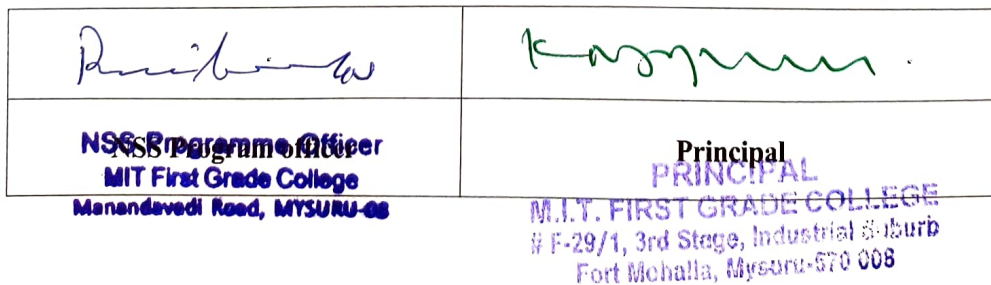 NSS Program officer
NSS Programme Officer
MIT First Grade College
Manandavadi Road, MYSURU-08
Principal
PRINCIPAL
M.I.T. FIRST GRADE COLLEGE
# F-29/1, 3rd Stage, Industrial Suburb
Fort Mohalla, Mysuru-570 008